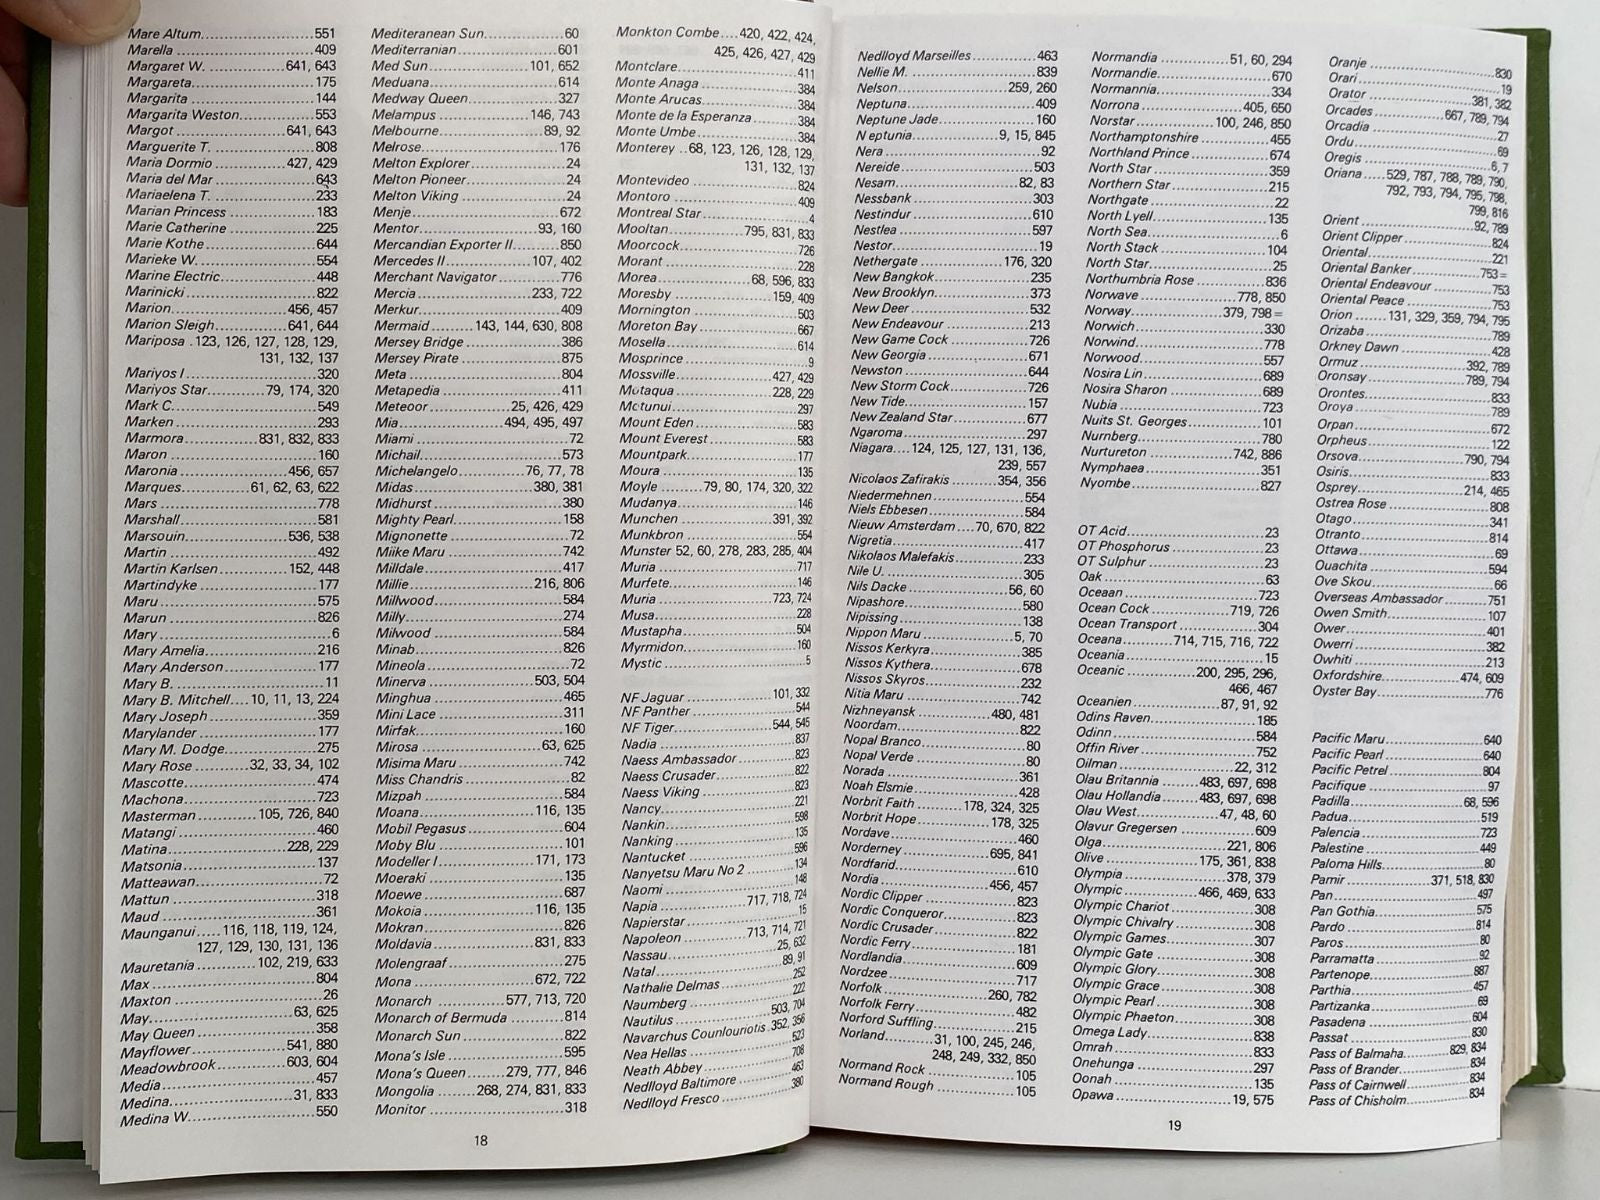 Mare Altum....................551
Marella ....................409
Margaret W. ....................641, 643
Margareta....................175
Margarita ....................144
Margarita Weston....................553
Margot ....................641, 643
Marguerite T. ....................808
Maria Dormio ....................427, 429
Maria del Mar ....................643
Mariaelena T. ....................233
Marian Princess ....................183
Marie Catherine ....................225
Marie Kothe ....................644
Marieke W. ....................554
Marine Electric....................448
Marinicki ....................822
Marion....................456, 457
Marion Sleigh....................641, 644
Mariposa .123, 126, 127, 128, 129,
131, 132, 137
Mariyos I ....................320
Mariyos Star....................79, 174, 320
Mark C....................549
Marken ....................293
Marmora ....................831, 832, 833
Maron ....................160
Maronia ....................456, 657
Marques....................61, 62, 63, 622
Mars ....................778
Marshall....................581
Marsouin....................536, 538
Martin ....................492
Martin Karlsen....................152, 448
Martindyke ....................177
Maru ....................575
Marun ....................826
Mary ....................6
Mary Amelia....................216
Mary Anderson....................177
Mary B. ....................11
Mary B. Mitchell....10, 11, 13, 224
Mary Joseph ....................359
Marylander ....................177
Mary M. Dodge....................275
Mary Rose ....................32, 33, 34, 102
Mascotte....................474
Machona....................723
Masterman ....................105, 726, 840
Matangi ....................460
Matina....................228, 229
Matsonia ....................137
Matteawan....................72
Mattun ....................318
Maud ....................361
Maunganui......116, 118, 119, 124,
127, 129, 130, 131, 136
Mauretania ....................102, 219, 633
Max ....................804
Maxton ....................26
May....................63, 625
May Queen ....................358
Mayflower....................541, 880
Meadowbrook....................603, 604
Media ....................457
Medina....................31, 833
Medina W....................550
Mediteranean Sun....................60
Mediterranian ....................601
Med Sun....................101, 652
Meduana....................614
Medway Queen ....................327
Melampus ....................146, 743
Melbourne ....................89, 92
Melrose....................176
Melton Explorer....................24
Melton Pioneer....................24
Melton Viking ....................24
Menje ....................672
Mentor....................93, 160
Mercandian Exporter II....................850
Mercedes II....................107, 402
Merchant Navigator ....................776
Mercia ....................233, 722
Merkur....................409
Mermaid ........143, 144, 630, 808
Mersey Bridge ....................386
Mersey Pirate ....................875
Meta ....................804
Metapedia ....................411
Meteoor....................25, 426, 429
Mia....................494, 495, 497
Miami ....................72
Michail....................573
Michelangelo....................76, 77, 78
Midas....................380, 381
Midhurst ....................380
Mighty Pearl....................158
Mignonette ....................72
Miike Maru ....................742
Milldale ....................417
Millie ....................216, 806
Millwood....................584
Milly....................274
Milwood ....................584
Minab ....................826
Mineola....................72
Minerva ....................503, 504
Minghua ....................465
Mini Lace ....................311
Mirfak....................160
Mirosa ....................63, 625
Misima Maru ....................742
Miss Chandris ....................82
Mizpah ....................584
Moana....................116, 135
Mobil Pegasus ....................604
Moby Blu ....................101
Modeller I ....................171, 173
Moeraki ....................135
Moewe ....................687
Mokoia ....................116, 135
Mokran ....................826
Moldavia ....................831, 833
Molengraaf....................275
Mona ....................672, 722
Monarch ....................577, 713, 720
Monarch of Bermuda ....................814
Monarch Sun ....................822
Mona's Isle ....................595
Mona's Queen ....................279, 777, 846
Mongolia ........268, 274, 831, 833
Monitor ....................318
Monkton Combe....420, 422, 424,
425, 426, 427, 429
Montclare....................411
Monte Anaga ....................384
Monte Arucas....................384
Monte de la Esperanza....................384
Monte Umbe ....................384
Monterey ..68, 123, 126, 128, 129,
131, 132, 137
Montevideo ....................824
Montoro ....................409
Montreal Star....................4
Mooltan ....................795, 831, 833
Moorcock....................726
Morant ....................228
Morea....................68, 596, 833
Moresby ....................159, 409
Mornington ....................503
Moreton Bay ....................667
Mosella ....................614
Mosprince ....................9
Mossville....................427, 429
Motaqua ....................228, 229
Motunui....................297
Mount Eden....................583
Mount Everest ....................583
Mountpark....................177
Moura ....................135
Moyle ........79, 80, 174, 320, 322
Mudanya....................146
Munchen ....................391, 392
Munkbron ....................554
Munster 52, 60, 278, 283, 285, 404
Muria ....................717
Murfete....................146
Muria ....................723, 724
Musa....................228
Mustapha....................504
Myrmidon....................160
Mystic ....................5
NF Jaguar ....................101, 332
NF Panther ....................544
NF Tiger....................544, 545
Nadia ....................837
Naess Ambassador ....................823
Naess Crusader....................822
Naess Viking ....................823
Nancy....................221
Nankin....................598
Nanking....................135
Nantucket ....................596
Nanyetsu Maru No 2 ....................134
Naomi ....................148
Napia ....................717, 718, 724
Napierstar ....................15
Napoleon ....................713, 714, 721
Nassau....................25, 632
Natal ....................89, 91
Nathalie Delmas ....................252
Naumberg ....................222
Nautilus ....................503, 704
Navarchus Counlouriotis .352, 356
Nea Hellas ....................523
Neath Abbey ....................708
Nedlloyd Baltimore ....................463
Nedlloyd Fresco ....................380
18
Nedlloyd Marseilles ....................463
Nellie M. ....................839
Nelson....................259, 260
Neptuna....................409
Neptune Jade....................160
N eptunia ....................9, 15, 845
Nera ....................92
Nereide....................503
Nesam....................82, 83
Nessbank ....................303
Nestindur ....................610
Nestlea....................597
Nestor....................19
Nethergate ....................176, 320
New Bangkok....................235
New Brooklyn....................373
New Deer ....................532
New Endeavour ....................213
New Game Cock ....................726
New Georgia ....................671
Newston ....................644
New Storm Cock....................726
New Tide....................157
New Zealand Star....................677
Ngaroma....................297
Niagara....124, 125, 127, 131, 136,
239, 557
Nicolaos Zafirakis ....................354, 356
Niedermehnen ....................554
Niels Ebbesen ....................584
Nieuw Amsterdam ....70, 670, 822
Nigretia....................417
Nikolaos Malefakis....................233
Nile U. ....................305
Nils Dacke ....................56, 60
Nipashore....................580
Nipissing ....................138
Nippon Maru ....................5, 70
Nissos Kerkyra ....................385
Nissos Kythera ....................678
Nissos Skyros....................232
Nitia Maru ....................742
Nizhneyansk ....................480, 481
Noordam....................822
Nopal Branco....................80
Nopal Verde ....................80
Norada ....................361
Noah Elsmie ....................428
Norbrit Faith ........178, 324, 325
Norbrit Hope ....................178, 325
Nordave....................460
Norderney ....................695, 841
Nordfarid....................610
Nordia ....................456, 457
Nordic Clipper ....................823
Nordic Conqueror....................823
Nordic Crusader....................822
Nordic Ferry ....................181
Nordlandia ....................609
Nordzee....................717
Norfolk ....................260, 782
Norfolk Ferry ....................482
Norford Suffling....................215
Norland............31, 100, 245, 246,
248, 249, 332, 850
Normand Rock ....................105
Normand Rough ....................105
Normandia ....................51, 60, 294
Normandie....................670
Normannia....................334
Norrona ....................405, 650
Norstar ....................100, 246, 850
Northamptonshire ....................455
Northland Prince ....................674
North Star ....................359
Northern Star....................215
Northgate ....................22
North Lyell....................135
North Sea....................6
North Stack ....................104
North Star....................25
Northumbria Rose ....................836
Norwave ....................778, 850
Norway....................379, 798=
Norwich....................330
Norwind....................778
Norwood....................557
Nosira Lin....................689
Nosira Sharon ....................689
Nubia ....................723
Nuits St. Georges....................101
Nurnberg....................780
Nurtureton ....................742, 886
Nymphaea....................351
Nyombe....................827
OT Acid....................23
OT Phosphorus ....................23
OT Sulphur ....................23
Oak ....................63
Oceaan ....................723
Ocean Cock ....................719, 726
Ocean Transport ....................304
Oceana........714, 715, 716, 722
Oceania ....................15
Oceanic ....................200, 295, 296,
466, 467
Oceanien....................87, 91, 92
Odins Raven....................185
Odinn ....................584
Offin River ....................752
Oilman ....................22, 312
Olau Britannia ........483, 697, 698
Olau Hollandia ........483, 697, 698
Olau West....................47, 48, 60
Olavur Gregersen ....................609
Olga....................221, 806
Olive ....................175, 361, 838
Olympia ....................378, 379
Olympic ....................466, 469, 633
Olympic Chariot ....................308
Olympic Chivalry ....................308
Olympic Games....................307
Olympic Gate ....................308
Olympic Glory....................308
Olympic Grace ....................308
Olympic Pearl....................308
Olympic Phaeton....................308
Omega Lady....................838
Omrah ....................833
Onehunga ....................297
Oonah ....................135
Opawa....................19, 575
Oranje ....................830
Orari ....................19
Orator ....................381, 382
Orcades ....................667, 789, 794
Orcadia ....................27
Ordu....................69
Oregis ....................6, 7
Oriana .....529, 787, 788, 789, 790,
792, 793, 794, 795, 798,
799, 816
Orient ....................92, 789
Orient Clipper....................824
Oriental....................221
Oriental Banker ....................753=
Oriental Endeavour ....................753
Oriental Peace ....................753
Orion ......131, 329, 359, 794, 795
Orizaba ....................789
Orkney Dawn ....................428
Ormuz ....................392, 789
Oronsay....................789, 794
Orontes....................833
Oroya ....................789
Orpan....................672
Orpheus....................122
Orsova....................790, 794
Osiris....................833
Osprey ....................214, 465
Ostrea Rose ....................808
Otago....................341
Otranto....................814
Ottawa....................69
Ouachita ....................594
Ove Skou....................66
Overseas Ambassador ....................751
Owen Smith....................107
Ower....................401
Owerri....................382
Owhiti ....................213
Oxfordshire....................474, 609
Oyster Bay....................776
Pacific Maru....................640
Pacific Pearl ....................640
Pacific Petrel ....................804
Pacifique....................97
Padilla ....................68, 596
Padua....................519
Palencia....................723
Palestine....................449
Paloma Hills....................80
Pamir....................371, 518, 830
Pan ....................497
Pan Gothia....................575
Pardo ....................814
Paros....................80
Parramatta ....................92
Partenope....................887
Parthia ....................457
Partizanka....................69
Pasadena ....................604
Passat ....................830
Pass of Balmaha....................829, 834
Pass of Brander....................834
Pass of Cairnwell ....................834
Pass of Chisholm....................834
19